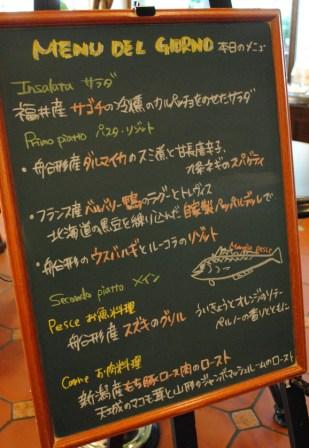 MENU DEL GIORNO 本日のメニュー
Insalata サラダ
福井産 サゴチの冷燻のカルパッチョをのせたサラダ
Primo piatto パスタ・リゾット
・船形産 ダルマイカのスミ煮と甘長唐辛子、
九条ネギのスパゲティ
・フランス産 バルバリー鴨のラグーとトレヴィス
北海道の黒豆を練り込んだ自家製パッパルデッレで
・船形のウスバハギとルーコラのリゾット
Mangia pesce
Secondo piatto メイン
Pesce お魚料理
船形産 スズキのグリル ういきょうとオレンジのソテー
ペルノーの香りとともに
Carne お肉料理
新潟産もち豚ロース肉のロースト
天城のマコモ茸と山形のジャンボマッシュルームのロースト